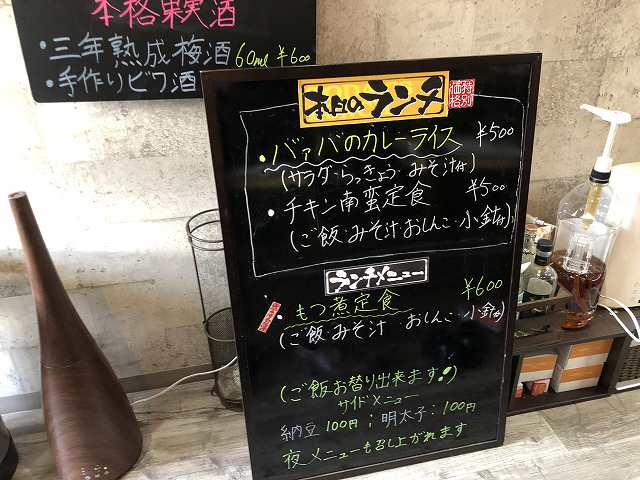 本格果実酒
・三年熟成梅酒 60ml ¥600
・手作りビワ酒
本日のランチ 特別価格
・バァバのカレーライス ¥500
(サラダ・らっきょう・みそ汁付)
・チキン南蛮定食 ¥500
(ご飯・みそ汁・おしんこ・小鉢付)
ランチメニュー
・もつ煮定食 ¥600
(ご飯・みそ汁・おしんこ・小鉢付)
(ご飯お替り出来ます!)
サイドメニュー
納豆100円;明太子:100円
夜メニューも召し上がれます